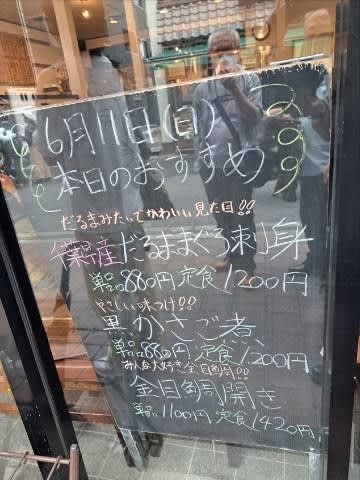 6月11日(日)
本日のおすすめ
だるまみたいでかわいい見た目!!
千葉産だるままぐろ刺身
単品880円 定食1200円
やさしい味つけ!!
黒かさご煮
単品880円 定食1200円
みんな大好き金目鯛!!
金目鯛開き
単品1100円 定食1420円